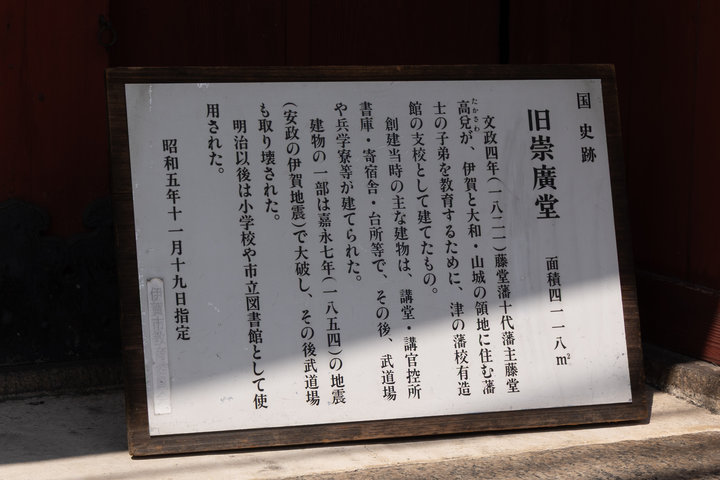 国史跡
旧崇廣堂
面積四一一八㎡
文政四年(一八二一)藤堂藩十代藩主藤堂
たかさわ
高兌が、伊賀と大和・山城の領地に住む藩
士の子弟を教育するために、津の藩校有造
館の支校として建てたもの。
創建当時の主な建物は、講堂・講官控所
書庫・寄宿舎・台所等で、その後、武道場
や兵学寮等が建てられた。
建物の一部は嘉永七年(一八五四)の地震
(安政の伊賀地震)で大破し、その後武道場
も取り壊された。
明治以後は小学校や市立図書館として使
用された。
昭和五年十一月十九日指定